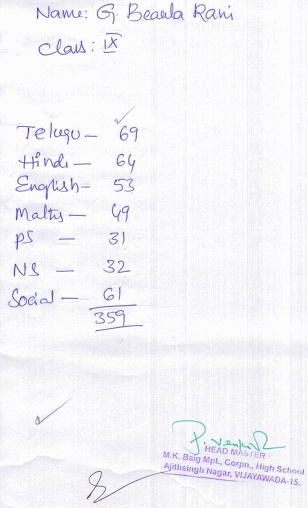 Name: G. Beaula Rani
Class: IX
Telugu — 69
Hindi — 64
English — 53
Maths — 49
PS — 31
NS — 32
Social — 61
359
HEAD MASTER
M.K. Baig Mpl., Corpn., High School
Ajithsingh Nagar, VIJAYAWADA-15.